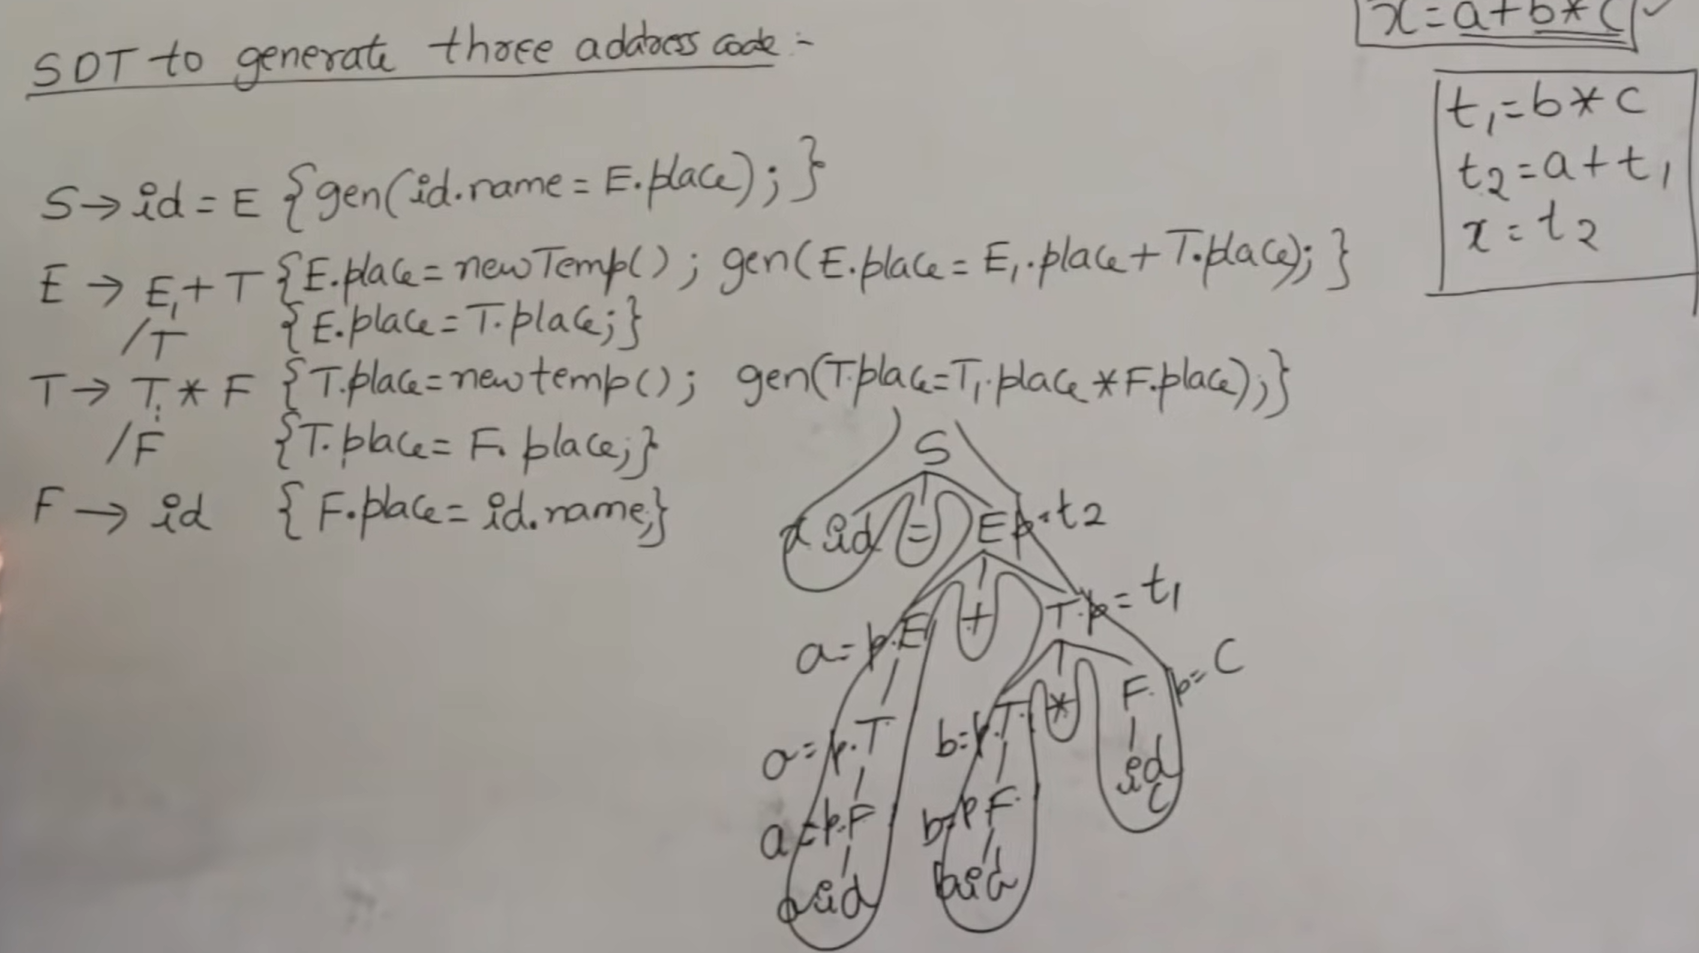 SDT to generate three address code :-
x = a + b * c ✓
t₁ = b * c
t₂ = a + t₁
x = t₂
S → id = E {gen(id.name = E.place); }
E → E₁ + T {E.place = newTemp(); gen(E.place = E₁.place + T.place); }
/T {E.place = T.place;}
T → T₁ * F {T.place = newtemp(); gen(T.place = T₁.place * F.place);}
/F {T.place = F.place;}
F → id { F.place = id.name;}
S
x id = E p. t₂
a = p.E + T.p = t₁
a = p.T b = p.T * F. p = C
a = p.F b = p F. id c
a id b id